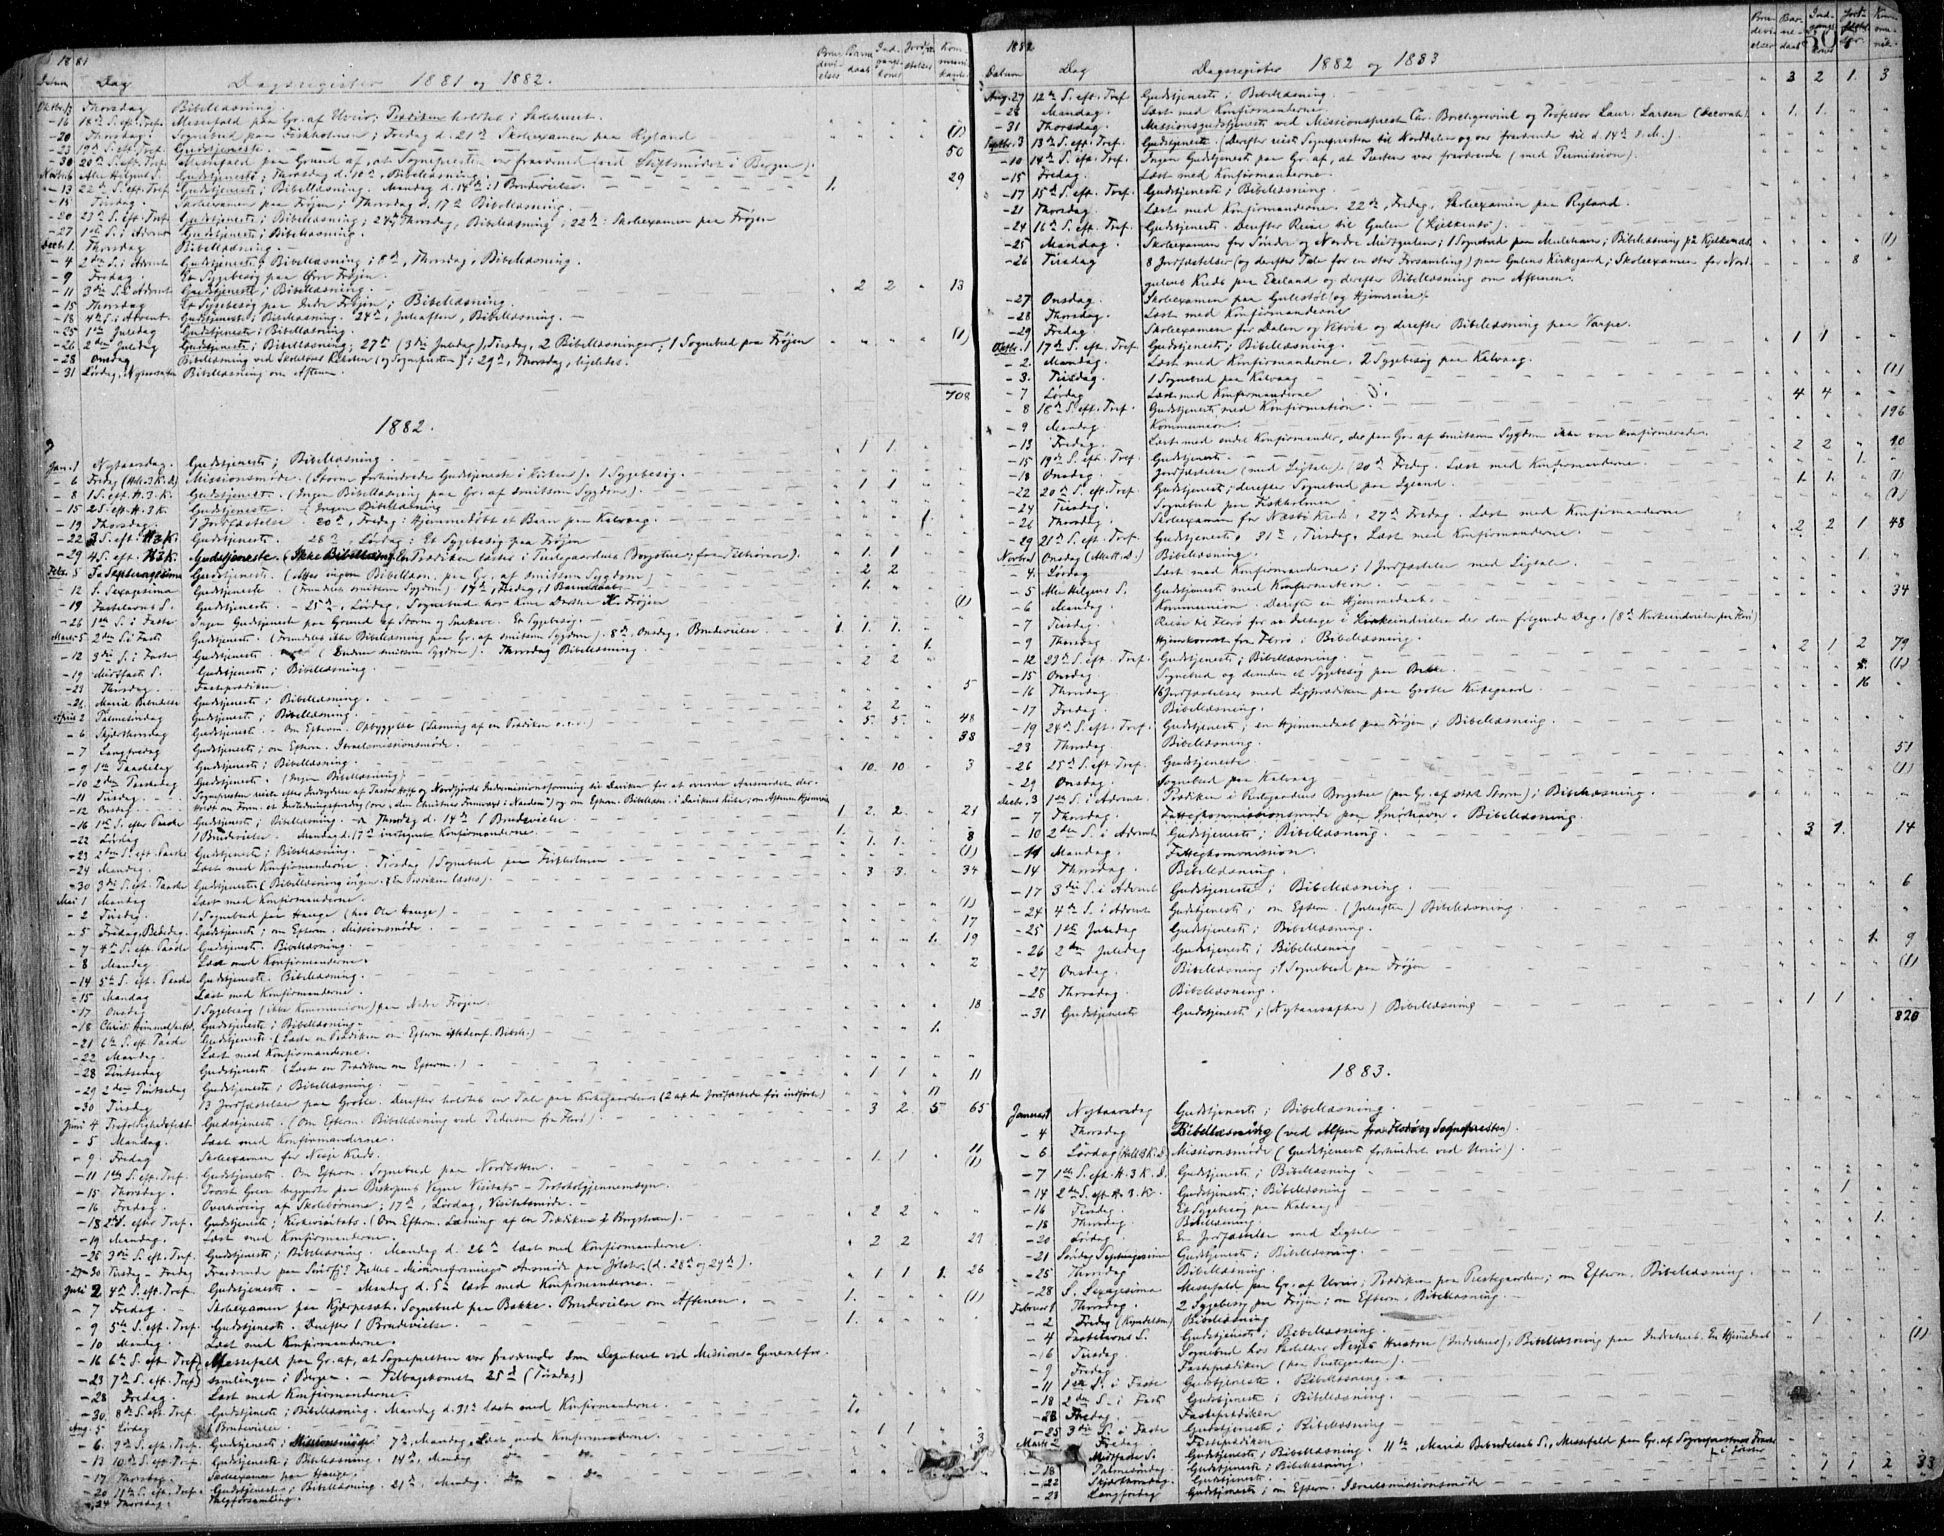 1881
Datum Dag Dagsregister 1881 og 1882.
Thorsdag Bibellæsning.
- 16 18de S. eft. Tref. Messefald paa Gr. af Uveir; Prædiken holdtes i Skolehuset.
- 20 Thorsdag Sognebud paa Fiskholmen; Fredag d. 21de Skoleexamen paa Ryland (1)
- 23 19de S. eft. Tref. Gudstjeneste. 50
- 30 20de S. eft. Tref. Messefald paa Grund af, at Sognepresten var fraværende (ved Stiftsmødet i Bergen).
Novbr. 6 Alle Helgens S. Gudstjeneste; Thorsdag d. 10de, Bibellæsning. 29
- 13 22de S. eft. Tref. Gudstjeneste; Bibellæsning. Mandag d. 14de: 1 Brudevielse. 1.
- 15 Tirsdag. Skoleexamen paa Frøjen; Thorsdag d. 17de Bibellæsning.
- 20 23de S. eft. Tref. Gudstjeneste; Bibellæsning; 24de, Thorsdag, Bibellæsning, 22de: Skoleexamen paa Frøjen
- 27 1ste S. i Advent Gudstjeneste; Bibellæsning.
Decbr. 1. Thorsdag Bibellæsning.
- 4 2den S. i Advent Gudstjeneste; Bibellæsning; 8de, Thorsdag, Bibellæsning.
- 9 Fredag. Et Sygebesøg paa Øvre Frøjen.
- 11 3die S. i Advent Gudstjeneste; Bibellæsning. 2 2 13
- 15 Thorsdag Et Sygebesøg paa Indre Frøjen; Bibellæsning.
- 18 4de S. i Advent Gudstjeneste; Bibellæsning. 24de, Juleaften, Bibellæsning.
- 25 1ste Juledag Gudstjeneste; Bibellæsning.
- 26 2den Juledag Gudstjeneste; Bibellæsning; 27de (3die Juledag), Tirsdag, 2 Bibellæsninger; 1 Sognebud paa Frøjen (1)
- 28 Onsdag Bibellæsning ved (og Sognepresten); 29de, Thorsdag, ligeledes.
- 31 Lørdag, Nytaarsaften Bibellæsning om Aftenen.
708
1882.
Jan. 1 Nytaarsdag. Gudstjeneste; Bibellæsning. 1 1
- 6 Fredag (Hell. 3 K. D.) Missionsmøde. (Storm forhindrede Gudstjeneste i Kirken). 1 Sygebesøg.
- 8 1 S. eft. H. 3 K. Gudstjeneste. (Ingen Bibellæsning paa Gr. af smitsom Sygdom). 1 1
- 15 2 S. eft. H. 3 K. Gudstjeneste. Ingen Bibellæsning
- 19 Thorsdag. 1 Jordfæstelse. 20de, Fredag: Hjemmedøbt et Barn paa Kalvaag. 1.
- 22 3 S. eft. H 3 K. Gudstjeneste. 28de, Lørdag: Et Sygebesøg paa Frøjen
- 29 4 S. eft. H 3 K. Gudstjeneste. (Ikke Bibellæsning. En Prædiken læstes i Prestegaardens Borgstue; faa Tilhørere). 1. 1
Febr. 5 Septuagesima Gudstjeneste. (Atter ingen Bibellæsn. paa Gr. af smitsom Sygdom) 2 2
- 12 S. Sexagesima Gudstjeneste (Fremdeles smitsom Sygdom). 17de, Fredag, 1 Barnedaab. 1.
- 19 Fastelavns S. Gudstjeneste. 25de, Lørdag, Sognebud hos Frøjen (1)
- 26 1ste S. i Faste Ingen Gudstjeneste paa Grund af Storm og Snekave. Et Sygebesøg.
Marts 5 2den S. i Faste Gudstjeneste. (Fremdeles ikke Bibellæsning paa Gr. af smitsom Sygdom). 8de, Onsdag, Brudevielse. 1. 1. 1.
- 12 3die S. i Faste Gudstjeneste. (Endnu smitsom Sygdom). Thorsdag Bibellæsning. 1.
- 19 Midfaste S. Gudstjeneste; Bibellæsning 2 2
- 23 Thorsdag. Fasteprædiken 5
- 26 Mariæ Bebudelse Gudstjeneste; Bibellæsning. 2 2
April 2 Palmesøndag Gudstjeneste; Bibellæsning. 5. 5. 48
- 6 Skjærthorsdag Gudstjeneste. Om Efterm. Opbyggelse (Læsning af en Prædiken o.s.v.) 38
- 7 Langfredag Gudstjeneste; om Efterm. Israelsmissionsmøde.
- 9 1ste Paaskedag Gudstjeneste; Bibellæsning. 10. 10. 3
- 10 2den Paaskedag Gudstjeneste. (Ingen Bibellæsning).
- 11 Tirsdag. Sognepresten reiste efter Indbydelse af Pastor Hoff og Nordfjords Indremissionsforening til Daviken for at overvære Aarsmødet der.
- 12 Onsdag. Holdt om Form. et Indledningsforedrag og om Efterm. Bibellæsn. i Davikens Kirke; om Aftenen Hjemreise
- 16 1ste S. efter Paaske Gudstjeneste; Bibellæsning. Thorsdag d. 14de 1 Brudevielse 1 2. 2. 21
- 22 Lørdag 1 Brudevielse. Mandag d. 17de indtegnet Konfirmanderne. 1.
- 23 2den S. eft. Paaske Gudstjeneste; Bibellæsning. 1. 1. 8
- 24 Mandag. Læst med Konfirmanderne. Tirsdag 1 Sognebud paa Fiskholmen (1)
- 30 3die S. eft. Paaske Gudstjeneste (Bibellæsning ingen. En Prædiken læstes). 3 3. 34
Mai 1 Mandag Læst med Konfirmanderne.
- 2 Tirsdag. 1 Sognebud paa Hauge (hos Ole Hauge) (1)
- 5 Fredag, Bededag. Gudstjeneste; om Efterm. Missionsmøde. 17
- 7 4de S. eft. Paaske Gudstjeneste. Bibellæsning. 1. 19
- 8 Mandag Læst med Konfirmanderne. 2
- 14 5te S. eft. Paaske Gudstjeneste. Bibellæsning.
- 15 Mandag Læst med Konfirmanderne.
- 17 Onsdag 1 Sygebesøg (ikke Kommunion) paa Nedre Frøjen. 18
- 18 Christi Himmelfartsd. Gudstjeneste; Bibellæsning. 1.
- 21 6te S. eft. Paaske Gudstjeneste. (Læste en Prædiken om Efterm.)
- 22 Mandag. Læst med Konfirmanderne.
- 28 Pintsedag Gudstjeneste (Læst en Prædiken om Efterm.) 1 1 11
- 29 2den Pintsedag Gudstjeneste; Bibellæsning. 11
- 30 Tirsdag 13 Jordfæstelser paa Grotle. Derefter holdtes en Tale paa Kirkegaarden (2 af de Jordfæstede før indført)
Juni 4 Trefoldighedsfest Gudstjeneste. (Om Efterm. Bibellæsning ved Pedersen fra Florø). 3 2 5 65
- 5 Mandag. Læst med Konfirmanderne.
- 9. Fredag Skoleexamen for Nesje Kreds.
- 11 1ste S. eft. Tref. Gudstjeneste. Om Efterm. Sognebud paa Nordbotten. 1. 1 11 (1)
- 15 Thorsdag. Provst Greve begyndte paa Biskopens Vegne Visitats - Protokolgjennemsyn.
- 16 Fredag. Overhøring af Skolebørnene; 17de, Lørdag, Visitatsmøde.
- 18 2den S. efter Tref. Gudstjeneste; Kirkevisitats. (Om Efterm. Læsning af en Prædiken i Borgstuen). 2 2
- 19 Mandag. Læst med Konfirmanderne.
- 25 3die S. eft. Tref. Gudstjeneste; Bibellæsning. Mandag d. 26de læst med Konfirmanderne. 2 2 29
- 27-30 Tirsdag - Fredag Fraværende paa Søndfj: Fælles-Missionsforenings Aarsmøde paa Jølster (d. 28de og 29de).
Juli 2 4de S. eft. Tref. Gudstjeneste. Mandag d. 5te læst med Konfirmanderne. 1 1 1. 26
- 7 Fredag. Skoleexamen paa Kjøpesæt. Sognebud paa Bakke. Brudevielse om Aftenen. 1. (1)
- 9 5te S. eft. Tref. Gudstjeneste. Derefter 1 Brudevielse. 1.
- 10 Mandag. Læst med Konfirmanderne.
- 16 6te S. eft. Tref.) Messefald paa Gr. af, at Sognepresten var fraværende som Deputeret ved Missions-Generalfor-
- 23 7de S. eft. Tref.) samlingen i Bergen. - Tilbagekomst 25de (Tirsdag)
- 28 Fredag. Læst med Konfirmanderne.
- 30. 8de S. eft. Tref. Gudstjeneste; Bibellæsning. Mandag d. 31te læst med Konfirmanderne.
Aug. 5 Lørdag 1 Brudevielse 1.
- 6. 9de S. eft. Tref. Gudstjeneste; Missionsmøde. 7de, Mandag, Læst med Konfirmanderne. 1 1 3
- 13 10de S. eft. Tref. Gudstjeneste; Bibellæsning. 14de, Mandag do do
- 17 Thorsdag. Skoleexamen paa Hauge.
- 20 11te S. eft. Tref. Gudstjeneste; Bibellæsning. 21de, Mandag. do - do
- 24 Thorsdag. Valgforsamling.
1882
Datum Dag Dagsregister 1882 og 1883
Aug. 27 12te S. eft. Tref. Gudstjeneste; Bibellæsning. 3 2 1. 3
- 28 Mandag. Læst med Konfirmanderne.
- 31 Thorsdag. Missionsgudstjeneste ved Missionsprest Chr. Borchgrevink og Professor Laur. Larsen (Decorah). 1. 1.
Septbr. 3 13de S. eft. Tref. Gudstjeneste. (Derefter reist Sognepresten til Norddalen og var fraværende til d. 14de d. M.).
- 10 14de S. eft. Tref. Ingen Gudstjeneste paa Gr. af, at Presten var fraværende (med Permission).
- 15 Fredag. Læst med Konfirmanderne.
- 17 15de S. eft. Tref. Gudstjeneste; Bibellæsning.
- 21 Thorsdag. Læst med Konfirmanderne. 22de, Fredag, Skoleexamen paa Ryland.
- 24 16de S. eft. Tref. Gudstjeneste. Derefter Reise til Gulen (Kjelkenæs).
- 25 Mandag. Skoleexamen for Søndre og Nordre Midtgulen; 1 Sognebud paa Mulehavn; Bibellæsning på Kjelkenæs. (1)
- 26 Tirsdag 8 Jordfæstelser (og derefter Tale for en stor Forsamling) paa Gulens Kirkegaard; Skoleexamen for Nord- 8
gulens Kreds paa Eseland og derefter Bibellæsning om Aftenen.
- 27 Onsdag. Skoleexamen paa Gulestøl (og Hjemreise).
- 28 Thorsdag. Læst med Konfirmanderne
- 29 Fredag. Skoleexamen for Dalen og Vetvik og derefter Bibellæsning paa Varpe.
Oktbr. 1 17de S. eft. Tref. Gudstjeneste; Bibellæsning. 1 1
- 2 Mandag. Læst med Konfirmanderne. 2 Sygebesøg paa Kalvaag.
- 3. Tirsdag. 1 Sognebud paa Kalvaag (1)
- 7 Lørdag Læst med Konfirmanderne
- 8 18de S. eft. Tref. Gudstjeneste med Konfirmation. 4 4
- 9 Mandag Kommunion. 196
- 13 Fredag. Læst med endel Konfirmander, der paa Gr. af smitsom Sygdom ikke var konfirmerede.
- 15 19de S. eft. Tref. Gudstjeneste. 2 2 40
- 18 Onsdag Jordfæstelse (med Ligtale). (20de Fredag. Læst med Konfirmanderne. 1.
- 22 20de S. eft. Tref. Gudstjeneste; derefter Sognebud paa Igland. 1. 1. (1)
- 24 Tirsdag. Sognebud paa Fiskholmen. (1)
- 26 Thorsdag. Skoleexamen for Næsbø Kreds. 27de Fredag. Læst med Konfirmanderne
- 29 21de S. eft. Tref. Gudstjeneste. 31te, Tirsdag, Læst med Konfirmanderne. 2 2 1 48
Novbr. 1 Onsdag Bibellæsning.
- 4. Lørdag Læst med Konfirmanderne; 1 Jordfæstelse med Ligtale. 1.
- 5 Alle Helgens S. Gudstjeneste med Konfirmation.
- 6 Mandag. Kommunion. Derefter en Hjemmedaab. 34
- 7 Tirsdag. Reise til Florø for at deltage i Kirkeindvielse der den følgende Dag. (8de Kirkeindvielse paa Florø)
- 9 Thorsdag Hjemkomst fra Florø; Bibellæsning.
- 12 23de S. eft. Tref. Gudstjeneste; Bibellæsning. 2 1 2 79
- 15 Onsdag Sognebud og desuden et Sygebesøg paa (1)
- 16 Thorsdag 16 Jordfæstelser med Ligprædiken paa Grotle Kirkegaard. 16
- 17 Fredag. Bibellæsning.
- 19 24de S. eft. Tref. Gudstjeneste; en Hjemmedaab paa Frøjen; Bibellæsning.
- 23 Thorsdag Bibellæsning.
- 26 25de S. eft. Tref. Gudstjeneste 51
- 29 Onsdag. Sognebud paa Kalvaag (1)
Decbr. 3 1ste S. i Advent. Prædiken i Prestegaardens Borgstue (paa Gr. af stærk Storm); Bibellæsning.
- 7 Thorsdag. Fattigkommissionsmøde paa Smørhavn. Bibellæsning.
- 10 2den S. i Advent Gudstjeneste; Bibellæsning. 3 1. 14
- 11 Mandag. Fattigkommission.
- 14 Thorsdag. Bibellæsning.
- 17 3die S. i Advent Gudstjeneste; Bibellæsning. 6
- 24 4de S. i Advent Gudstjeneste; om Efterm. (Juleaften) Bibellæsning.
- 25 1ste Juledag Gudstjeneste; Bibellæsning.
- 26 2den Juledag Gudstjeneste; Bibellæsning 1. 9
- 27 Onsdag. Bibellæsning; 1 Sognebud paa Frøjen (1)
- 28 Thorsdag. Bibellæsning.
- 31 Gudstjeneste Gudstjeneste; (Nytaarsaften) Bibellæsning 1 1
820
1883.
Januar 1 Nytaarsdag Gudstjeneste; Bibellæsning.
- 4 Thorsdag Bibellæsning (ved Alfsen fra Florø og Sognepresten).
- 6 Lørdag (Hell. 3 K. D.) Missionsmøde (Gudstjeneste forhindret ved Uveir).
- 7 1ste S. eft. H. 3 K. D. Gudstjeneste; Bibellæsning
- 14 2den S. eft. H. 3. K. Gudstjeneste; Bibellæsning 1
- 16 Tirsdag. Et Sygebesøg paa Kalvaag
- 18 Thorsdag Bibellæsning. 1.
- 20 Lørdag. En Jordfæstelse med Ligtale
- 21 Søndag Septuagesima Gudstjeneste; Bibellæsning.
- 25 Thorsdag Bibellæsning.
- 28 S. Sexagesima Messefald paa Gr. af Uveir; Prædiken paa Prestegaarden; om Efterm. Bibellæsning.
Februar 1 Thorsdag. 2 Sygebesøg paa Frøjen; om Efterm. Bibellæsning.
- 2 Fredag (Kyndelsm.) Bibellæsning
- 4 Fastelavns S. Gudstjeneste; Bibellæsning. 1
- 16 Tirsdag. Sognebud hos Nesjes Hustru (Indrehus); Bibellæsning paa Indrehus. En Hjemmedaab (1)
- 9 Fredag Fasteprædiken (paa Prestegaarden).
- 11 1ste S. i Faste Gudstjeneste. Bibellæsning.
- 18 2den S. i Faste Gudstjeneste; Bibellæsning.
- 23 Fredag. Fasteprædiken
- 25 3die S. i Faste Gudstjeneste; Bibellæsning
Marts 2 Fredag. Fasteprædiken.
Midfaste S. Gudstjeneste; Bibellæsning. 11te, Mariæ Bebudelses S., Messefald paa Gr. af Sognepresten
- 18 Palmesøndag Gudstjeneste; Bibellæsning.
- 22 Skjærthorsdag. Gudstjeneste. 1 1 2 33
- 23 Langfredag Gudstjeneste; om Efterm. Israelsmissionsmøde